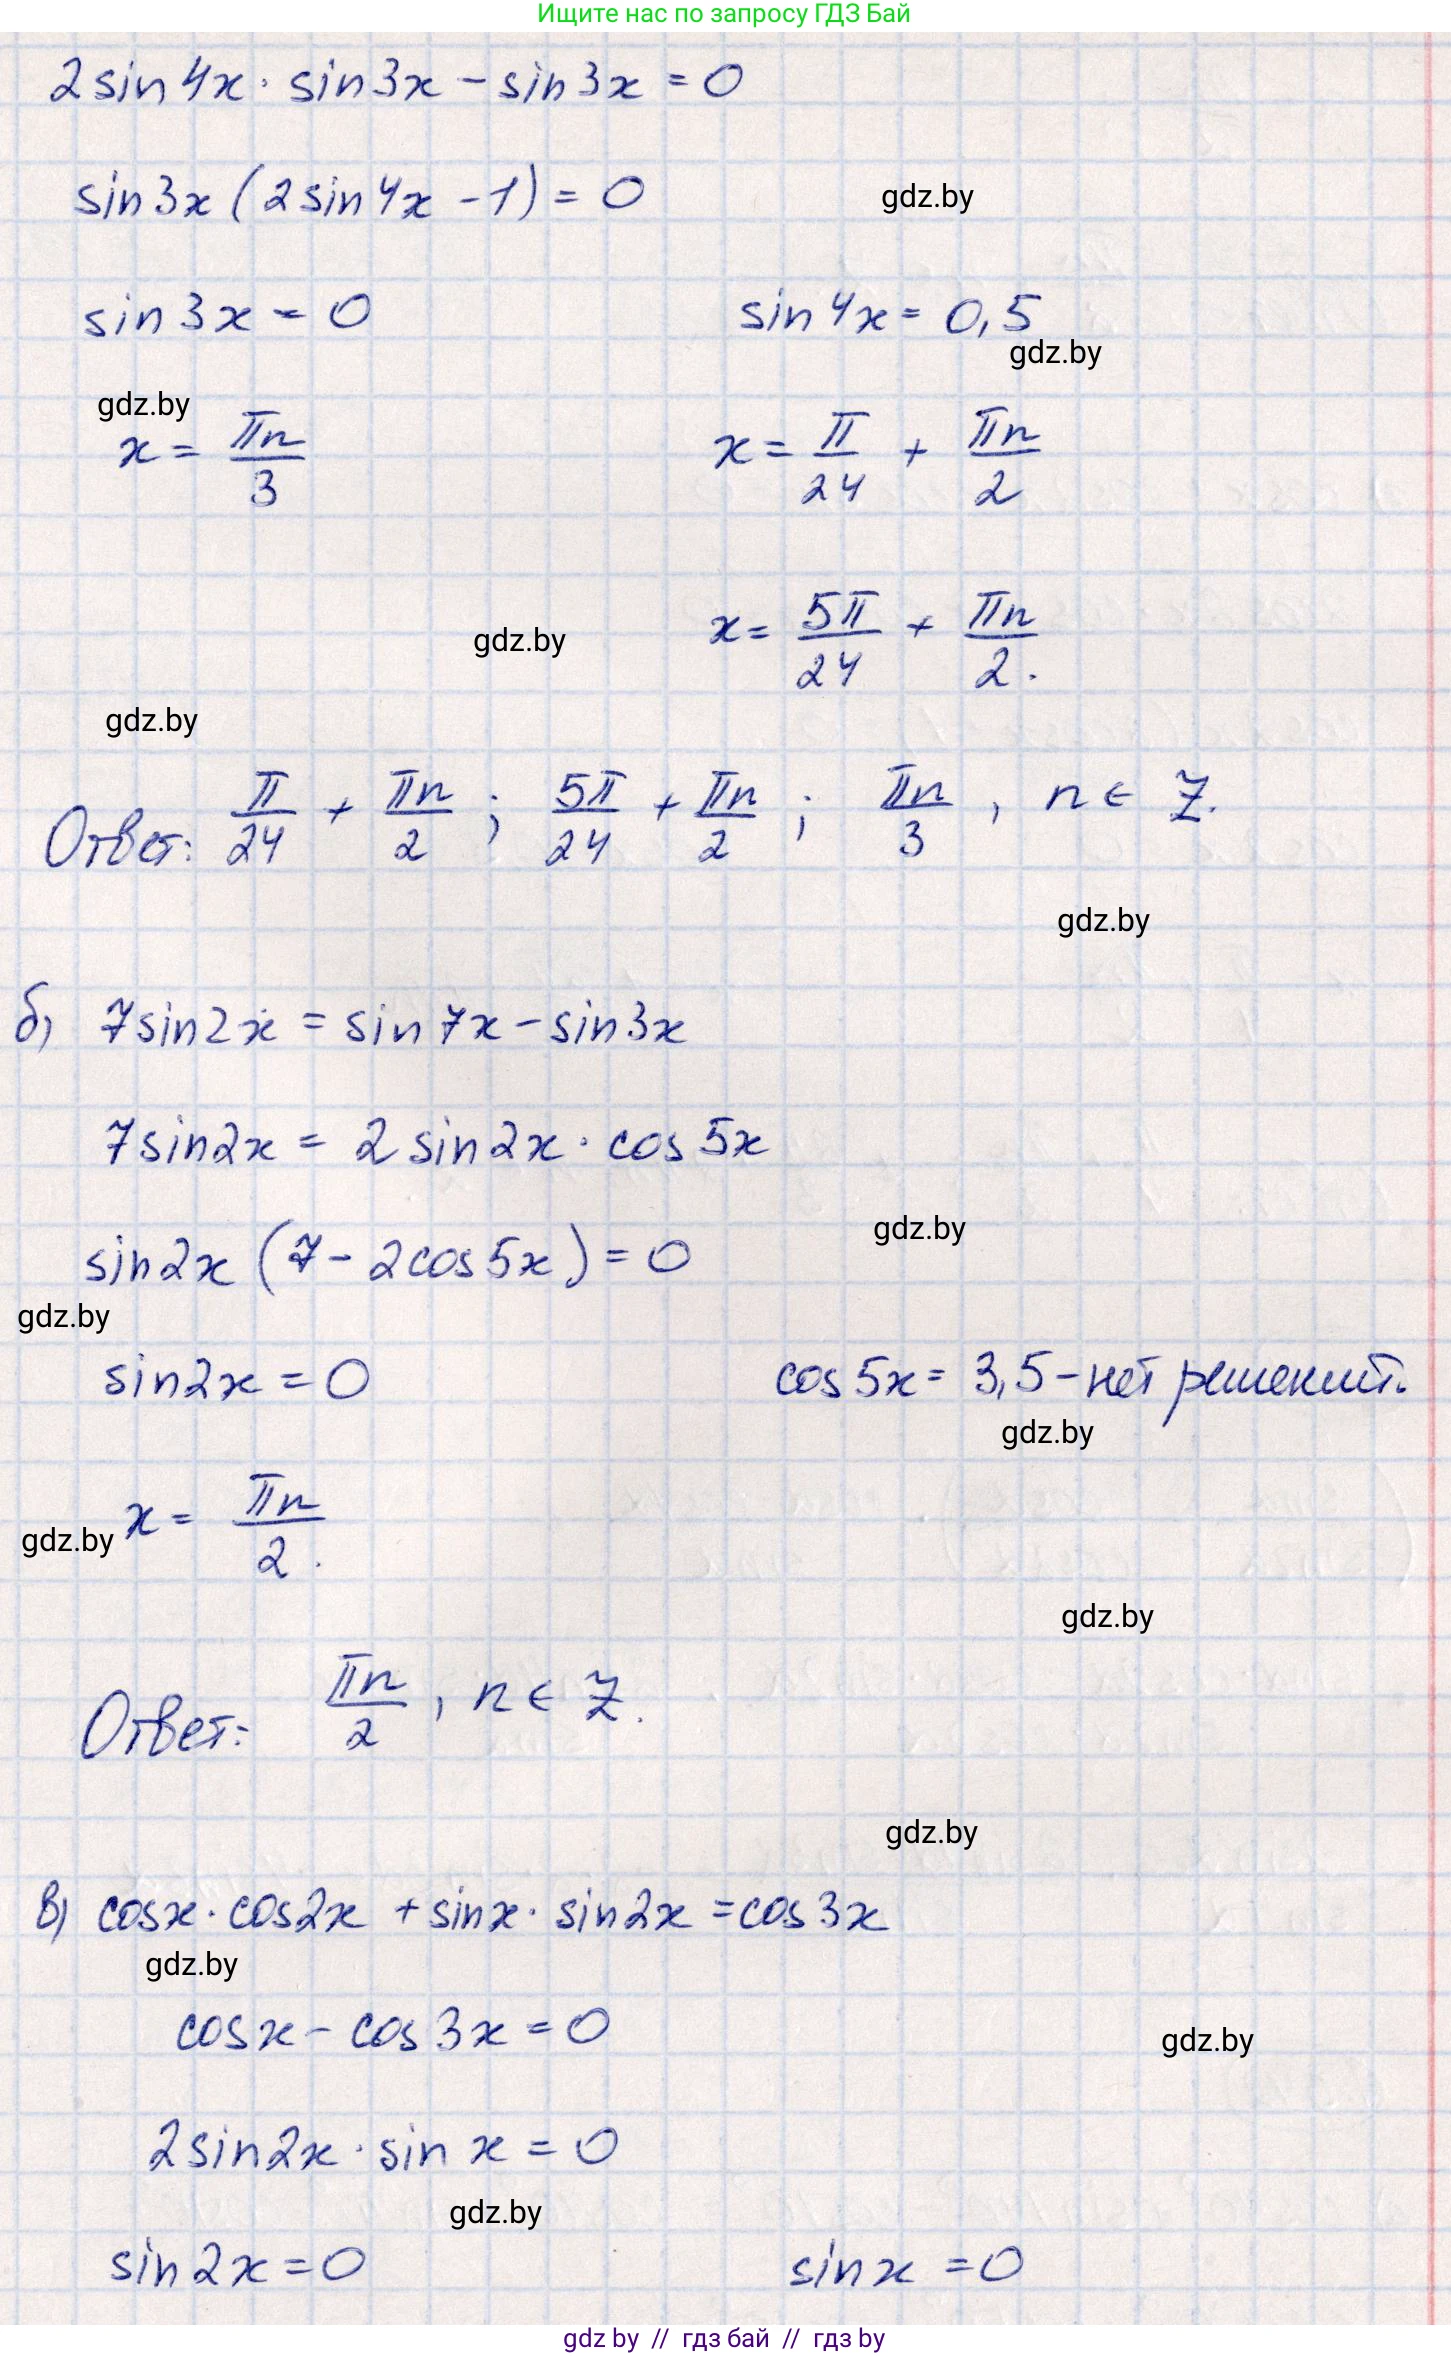 Ищите нас по запросу ГДЗ Бай
2sin4x · sin3x - sin3x = 0
sin3x (2sin4x - 1) = 0
gdz.by
sin3x = 0    sin4x = 0,5
gdz.by
gdz.by
x = πn/3    x = π/24 + πn/2
x = 5π/24 + πn/2.
gdz.by
gdz.by
Ответ: π/24 + πn/2 ; 5π/24 + πn/2 ; πn/3 , n ∈ Z.
gdz.by
б) 7sin2x = sin7x - sin3x
7sin2x = 2sin2x · cos5x
gdz.by
sin2x (7 - 2cos5x) = 0
gdz.by
sin2x = 0    cos5x = 3,5 - нет решений.
gdz.by
x = πn/2.
gdz.by
gdz.by
Ответ: πn/2 , n ∈ Z.
gdz.by
в) cosx · cos2x + sinx · sin2x = cos3x
gdz.by
cosx - cos3x = 0
gdz.by
2sin2x · sin x = 0
gdz.by
sin2x = 0    sinx = 0
gdz by // гдз бай // гдз by